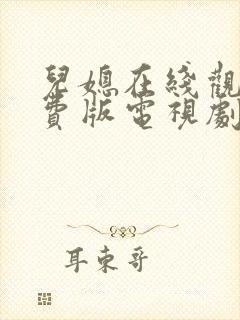 兒媳在綫觀
費版電視劇
耳東哥